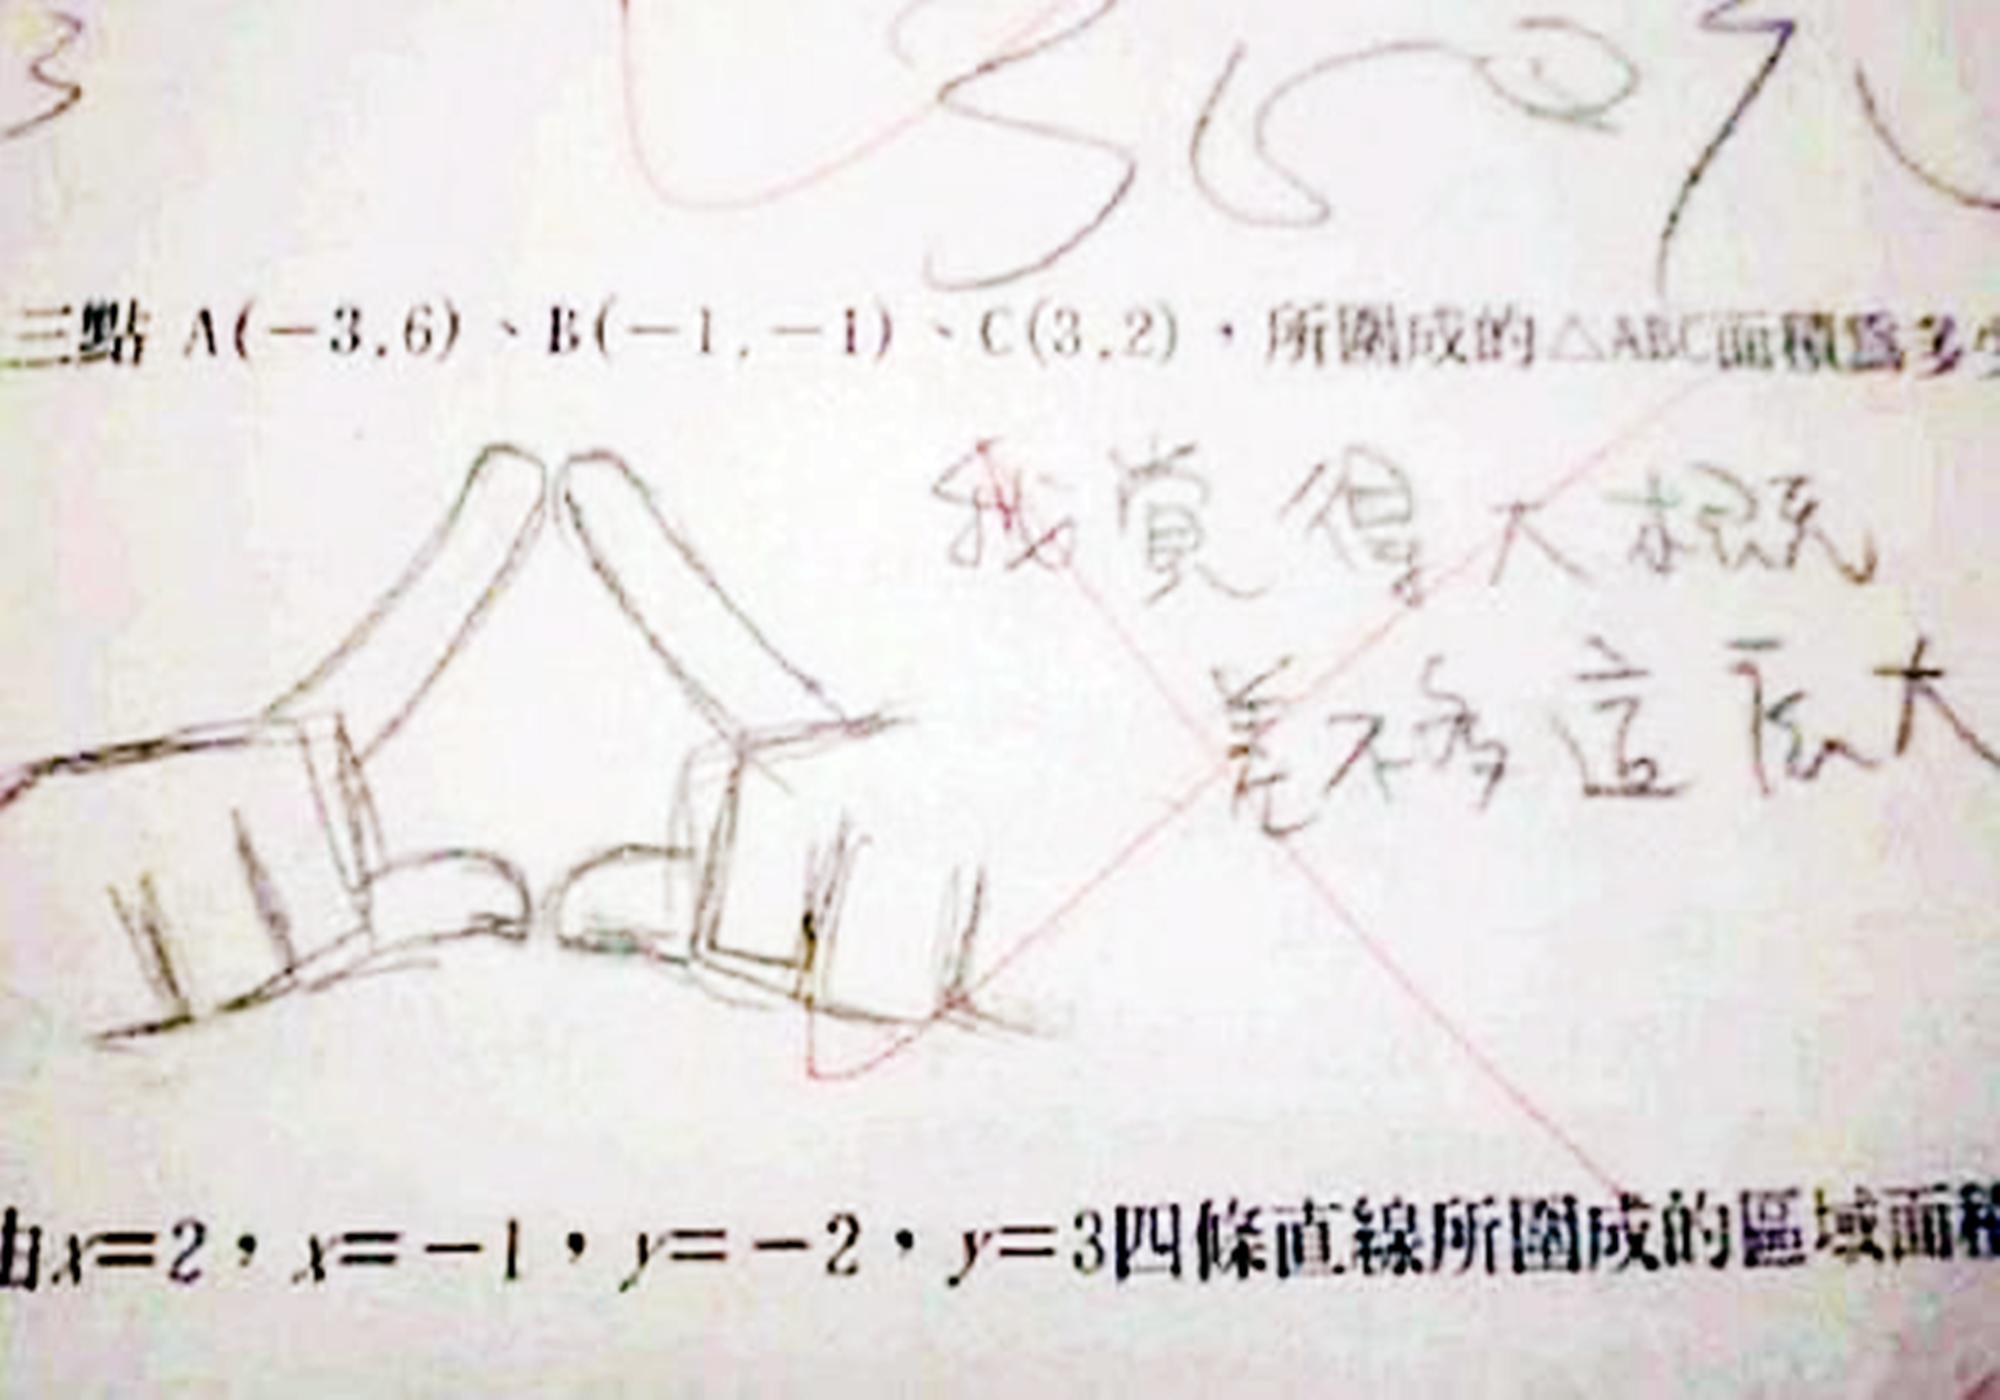 三點 A(－3,6)、B(－1,－1)、C(3,2)，所圍成的△ABC面積為多少
我覺得大概
差不多這麼大
由x=2，x=－1，y=－2，y=3四條直線所圍成的區域面積